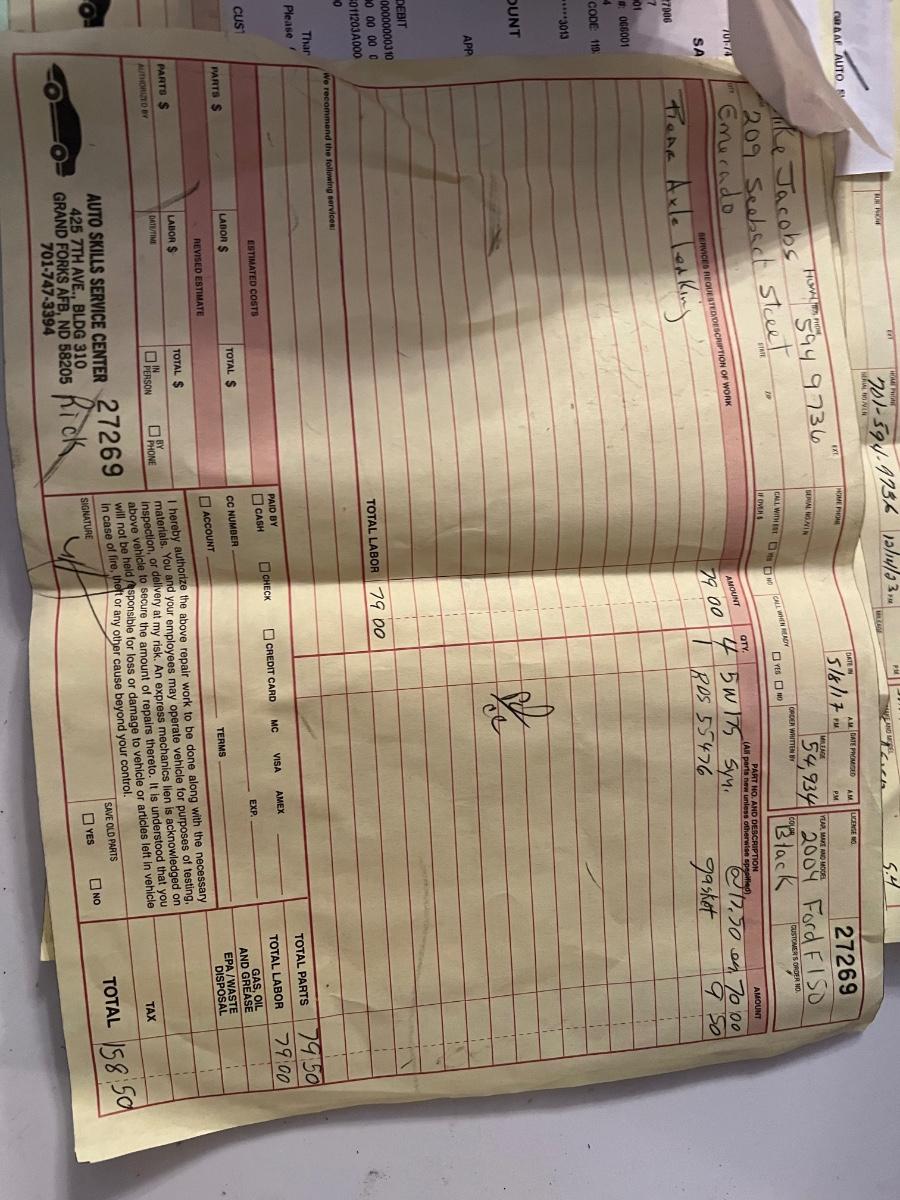 27269
DATE IN
A.M.
DATE PROMISED
A.M.
LICENSE NO.
5/8/17
P.M.
P.M.
HOME PHONE
SERIAL NO./V.I.N.
MILEAGE
54,934
YEAR, MAKE AND MODEL
2004 Ford F150
Jacobs
594 9736
EXT.
209 Seeback Street
Emerado
STATE
ZIP
CALL WITH EST.
YES
NO
IF OVER $
CALL WHEN READY
YES
NO
ORDER WRITTEN BY
COLOR
Black
CUSTOMER'S ORDER NO.
SERVICES REQUESTED/DESCRIPTION OF WORK
AMOUNT
QTY.
PART NO. AND DESCRIPTION
(All parts new unless otherwise specified)
AMOUNT
79 00
4
@17.50 ea
70 00
Axle Leaking
1
RDS 55476
gasket
9 50
TOTAL LABOR
79 00
We recommend the following services:
TOTAL PARTS
79 50
TOTAL LABOR
79.00
GAS, OIL
AND GREASE
EPA / WASTE
DISPOSAL
TAX
TOTAL
158 50
ESTIMATED COSTS
PARTS $
LABOR $
TOTAL $
REVISED ESTIMATE
PARTS $
LABOR $
TOTAL $
AUTHORIZED BY
DATE/TIME
IN PERSON
BY PHONE
PAID BY
CASH
CHECK
CREDIT CARD
MC
VISA
AMEX
CC NUMBER
EXP.
ACCOUNT
TERMS
I hereby authorize the above repair work to be done along with the necessary
materials. You and your employees may operate vehicle for purposes of testing,
inspection, or delivery at my risk. An express mechanics lien is acknowledged on
above vehicle to secure the amount of repairs thereto. It is understood that you
will not be held responsible for loss or damage to vehicle or articles left in vehicle
in case of fire, theft or any other cause beyond your control.
SIGNATURE
SAVE OLD PARTS
YES
NO
AUTO SKILLS SERVICE CENTER
425 7TH AVE., BLDG 310
GRAND FORKS AFB, ND 58205
701-747-3394
27269
Rick